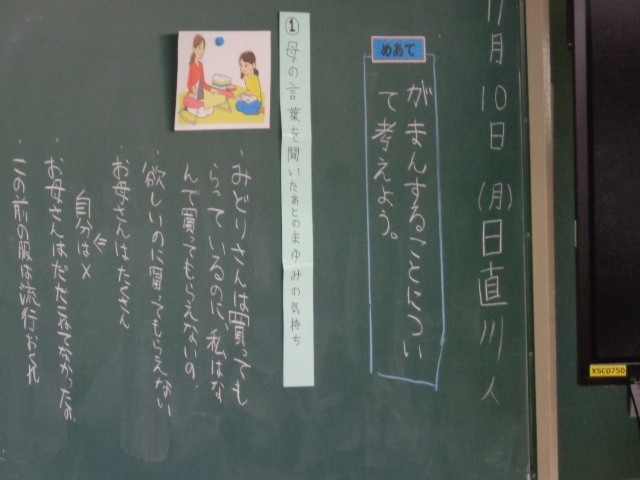 11月10日(月)日直川人
めあて
がまんすることについ
て考えよう。
①母の言葉を聞いたあとのまゆみの気持ち
・みどりさんは買っても
らっているのに、私はな
んで買ってもらえないの。
・欲しいのに買ってもらえない
・お母さんはたくさん
自分は×
・お母さんはだだこねてなかったの
・この前の服は流行おくれ
XSC0750